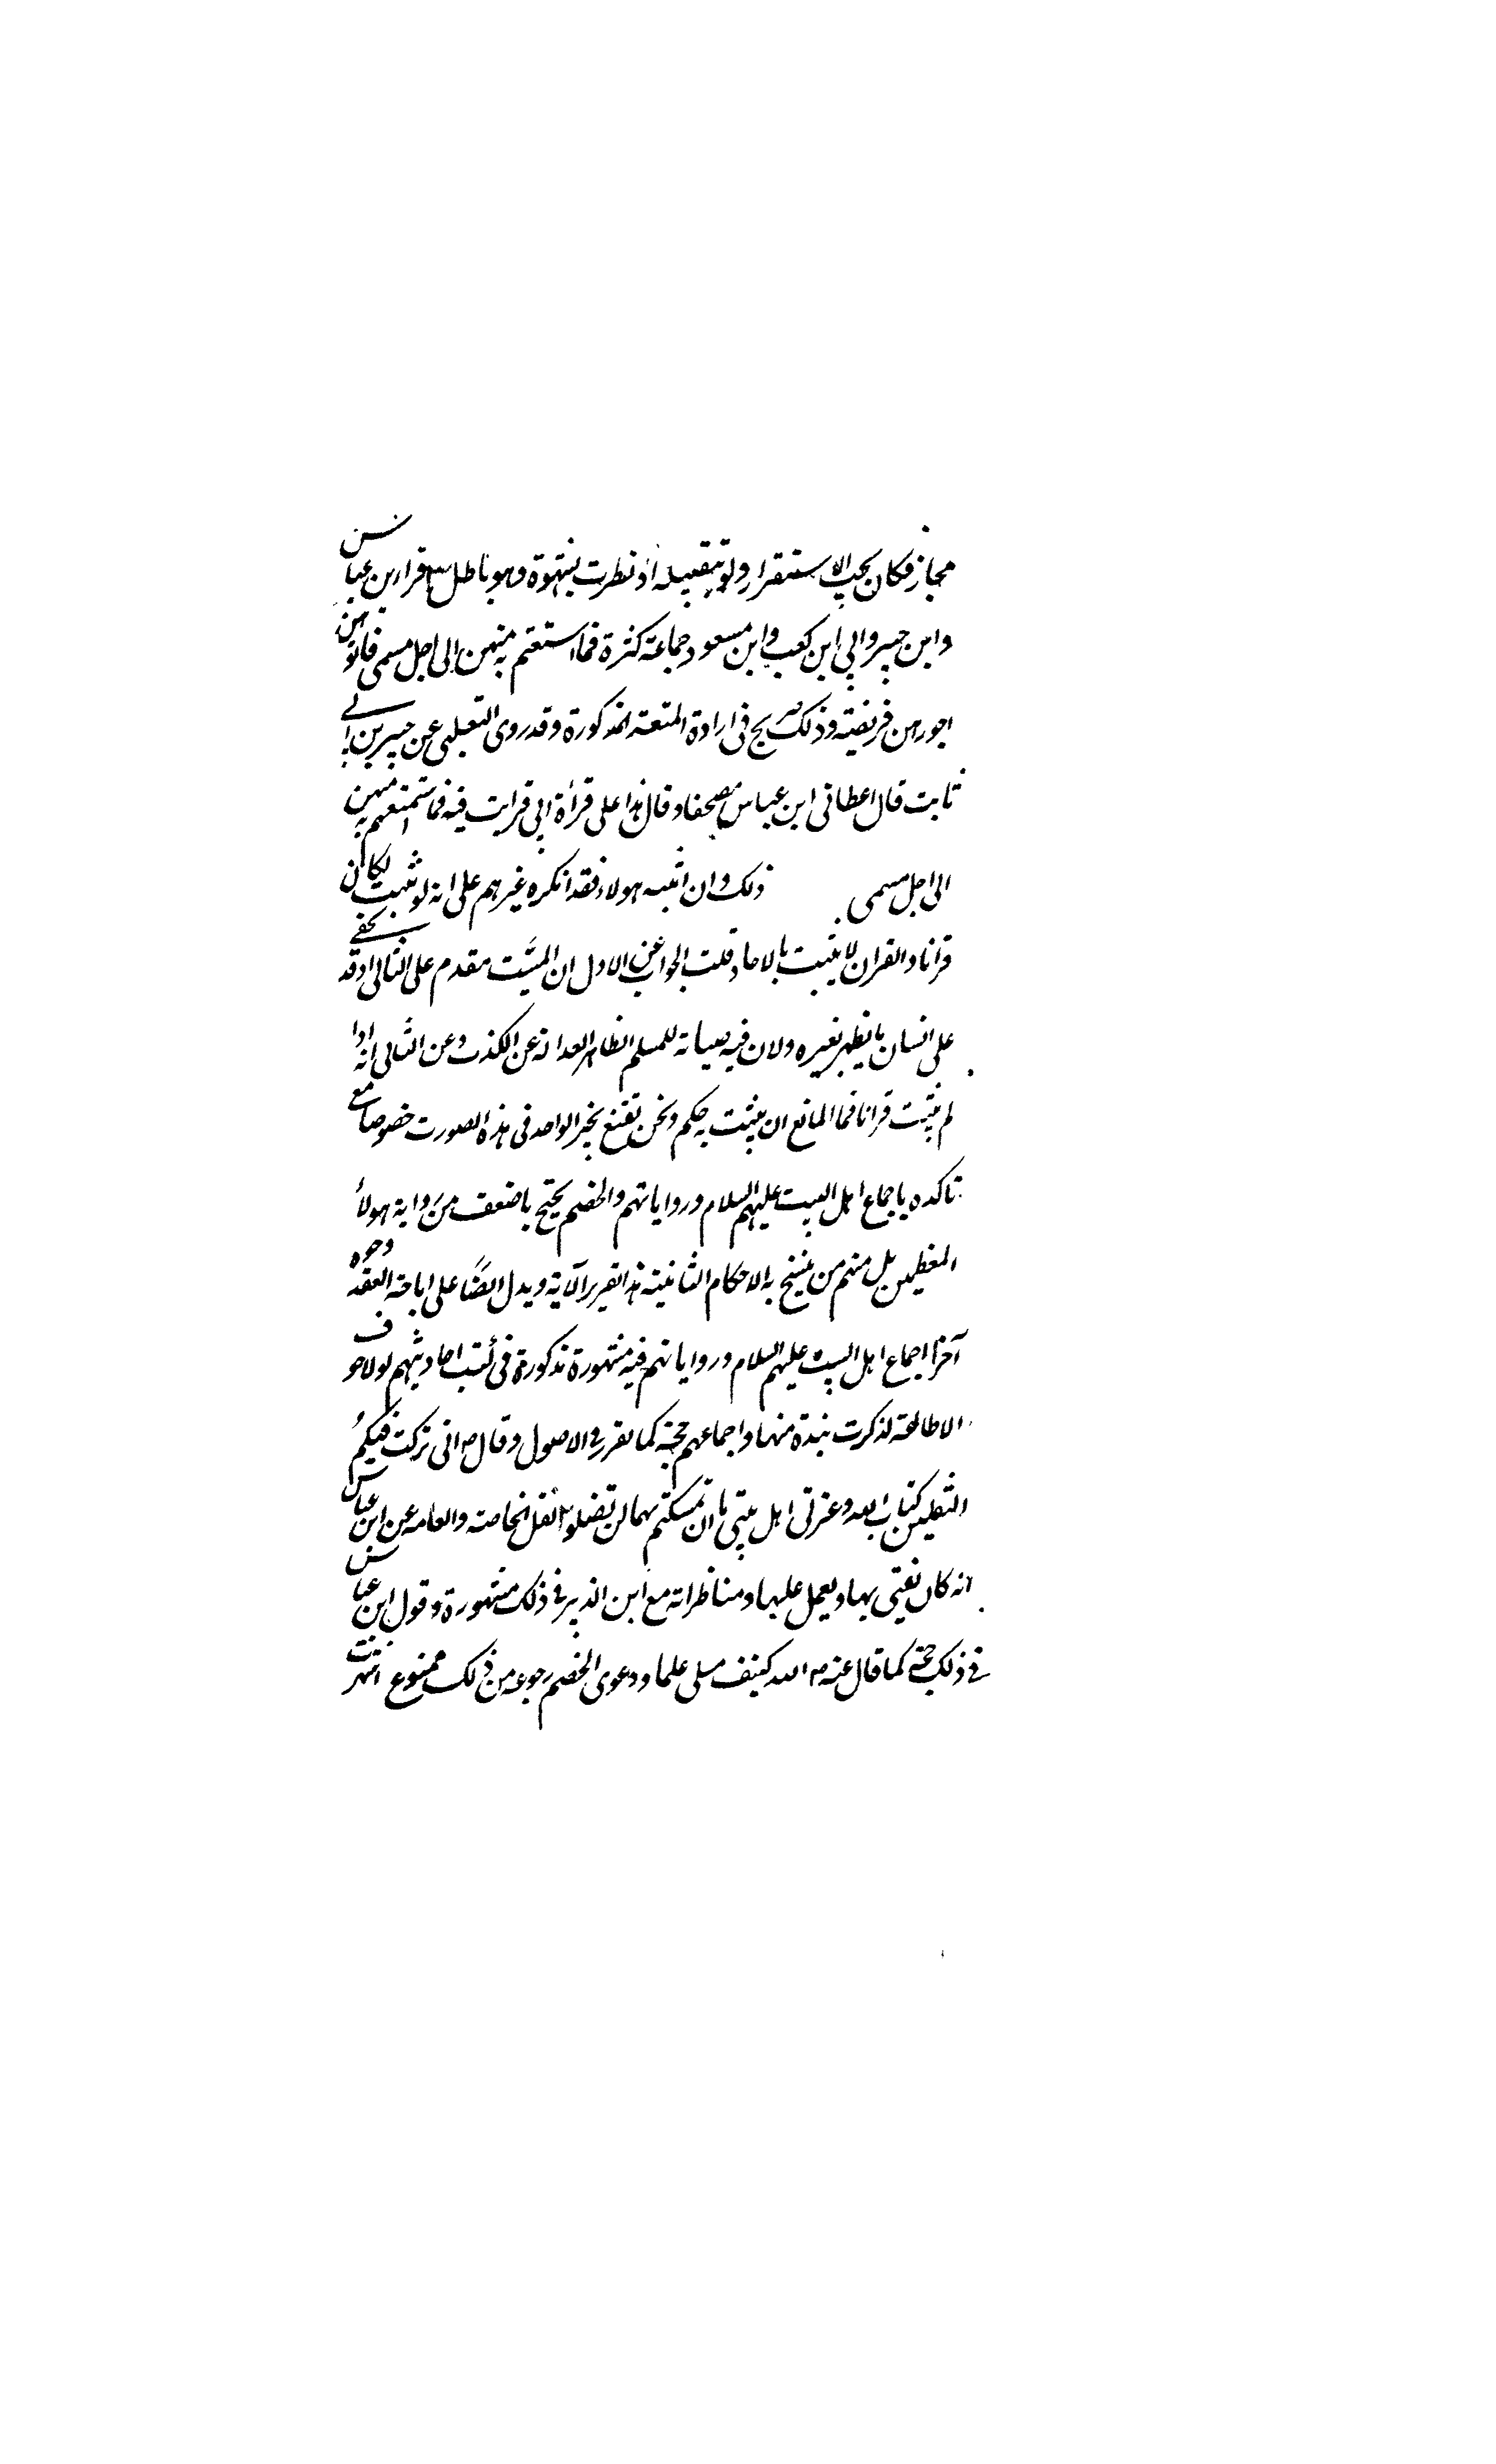 مجاز فكان يجب الاستقرار ولو بتقبيله او نظرت بشهوة وهو باطل قرا ابن عباس
وابن جبير وابي ابن كعب وابن مسعود جماعة كثرة فما استمتعتم به منهن الى اجل مسمى فاتوهن
اجورهن فريضة وذلك صريح في ارادة المتعة المذكورة وقد روى الثعلبي عن جبير بن ابي
ثابت قال اعطاني ابن عباس مصحفا وقال هذا على قرأة ابي قرايت فيه فما استمتعتم به منهن
الى اجل مسمى ذلك وان اثبته هولاء فقد انكره غيرهم على انه لو ثبت لكان
قرانا والقران لا يثبت بالاحاد قلت الجواب عن الاول ان المثبت مقدم على الثاني اذ قد يخفى
على انسان ما يظهر لغيره ولان فيه صيانة للمسلم الظاهر العدالة عن الكذب وعن الثاني انه اذا
لم يثبت قرانا فما المانع ان يثبت به حكم ونحن نقنع بخبر الواحد في هذه الصورت خصوصا مع
تاكده باجماع اهل البيت عليهم السلام ورواياتهم والخصم يحتج باضعف من رواية هولاء
المعظمين بل منهم من ينسخ به الاحكام الثابتة هذا تقرير الآية ويدل ايضا على اباحة العقد وجوه
آخر اجماع اهل البيت عليهم السلام ورواياتهم فيه مشهورة مذكورة في كتب احاديثهم لولا خوف
الاطالة لذكرت نبذة منها واجماعهم حجة كما تقرر في الاصول وقال ص اني تركت فيكم
الثقلين كتاب الله وعترتي اهل بيتي ما ان تمسكتم بهما لن تضلوا نقل الخاصة والعامة عن ابن عباس
انه كان يفتي بها ويعمل عليها ومناظراته مع ابن الزبير في ذلك مشهورة وقول ابن عباس
في ذلك حجة كما قال عنه ص كنيف ملي علما ودعوى الخصم رجوعه من ذلك ممنوع اشهرت